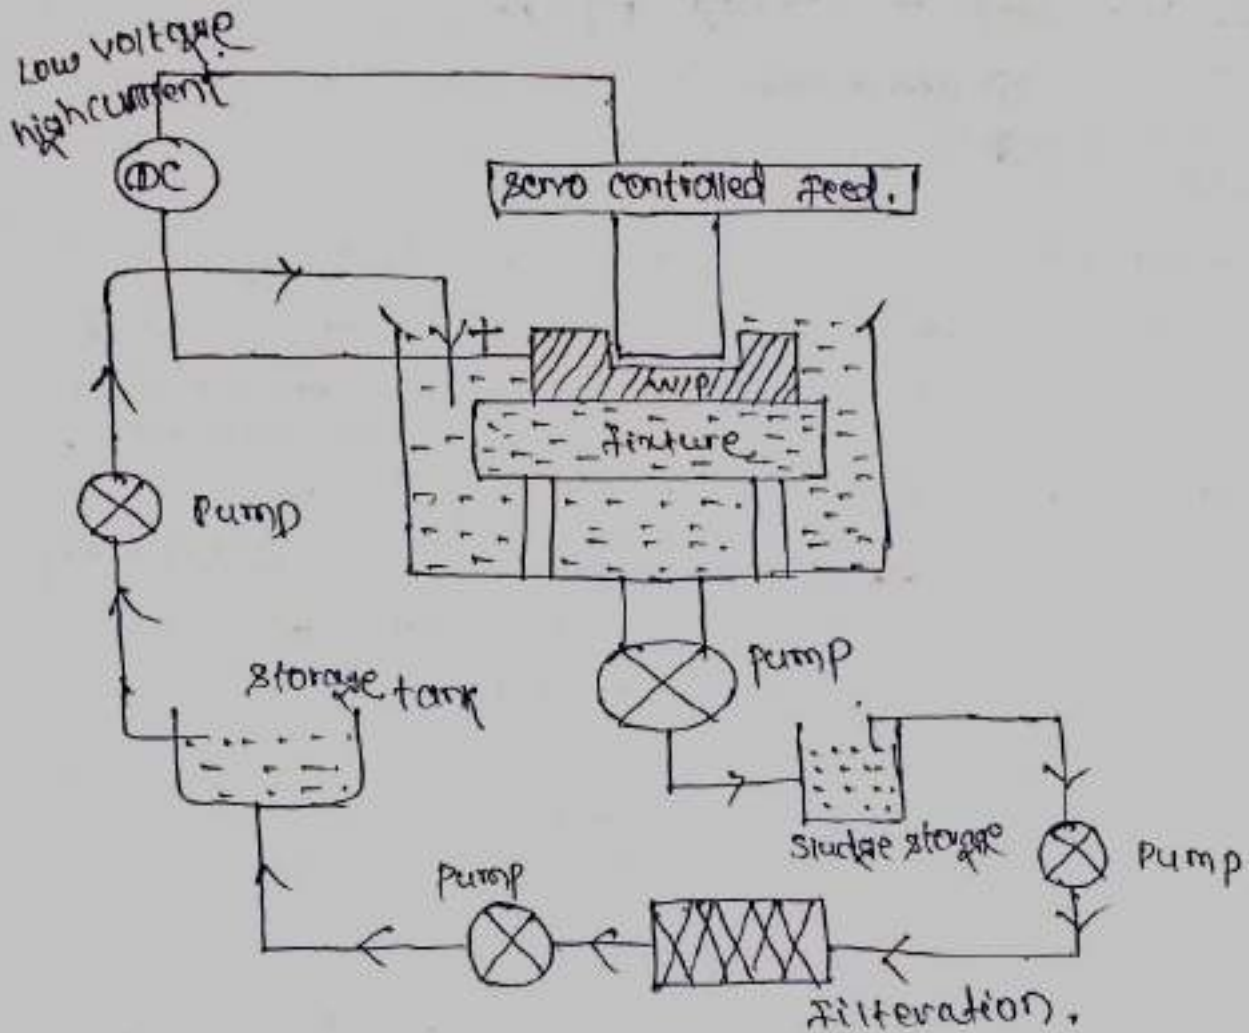 Low voltage
high current
DC
servo controlled feed.
+
W/P
Fixture
Pump
Pump
storage tank
sludge storage
Pump
Pump
Filteration.